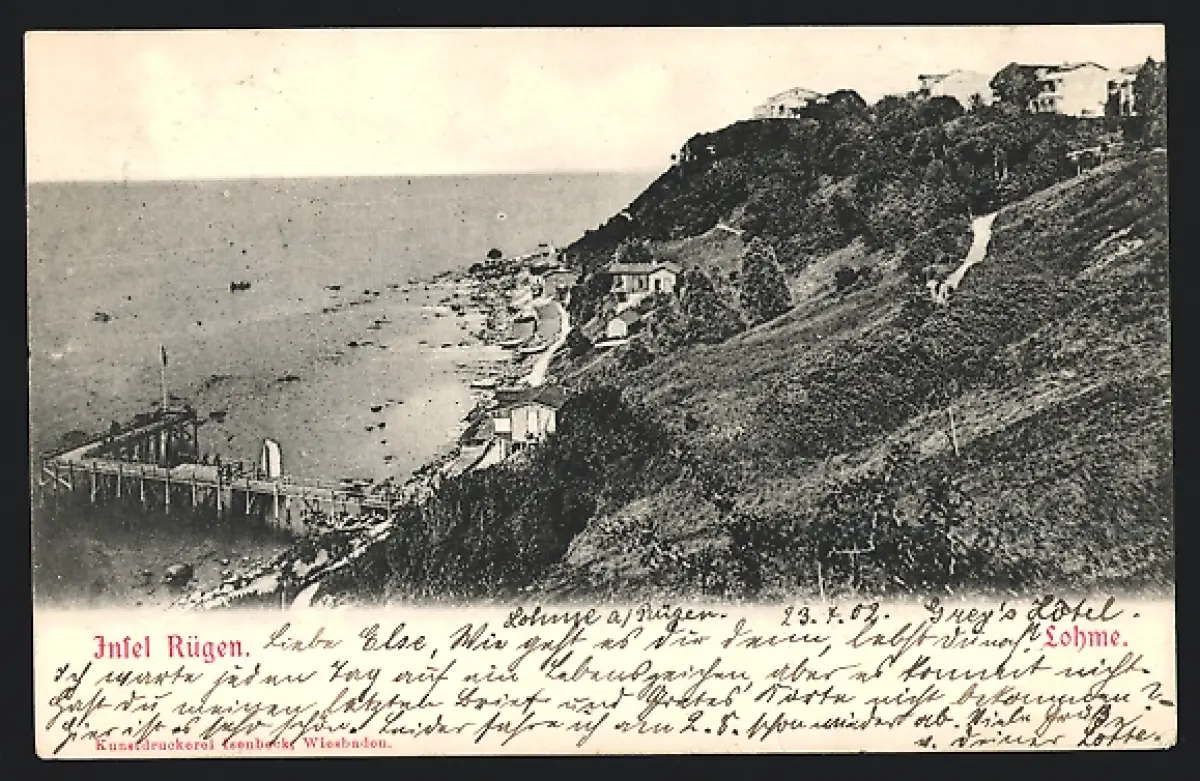 Lohme a/ Rügen. 23.7.02. Grey's Hotel.
Insel Rügen.
Lohme.
Liebe Else, Wie geht es dir denn, lebst du noch?
Ich warte jeden Tag auf ein Lebenszeichen, aber es kommt nicht.
Hast du meinen letzten Brief und Karte nicht bekommen?
Hier ist es sehr schön. Leider fahre ich am 2.8. schon wieder ab. Viele Grüße
v. deiner Lotte.
Kunstdruckerei Isenbeck, Wiesbaden.